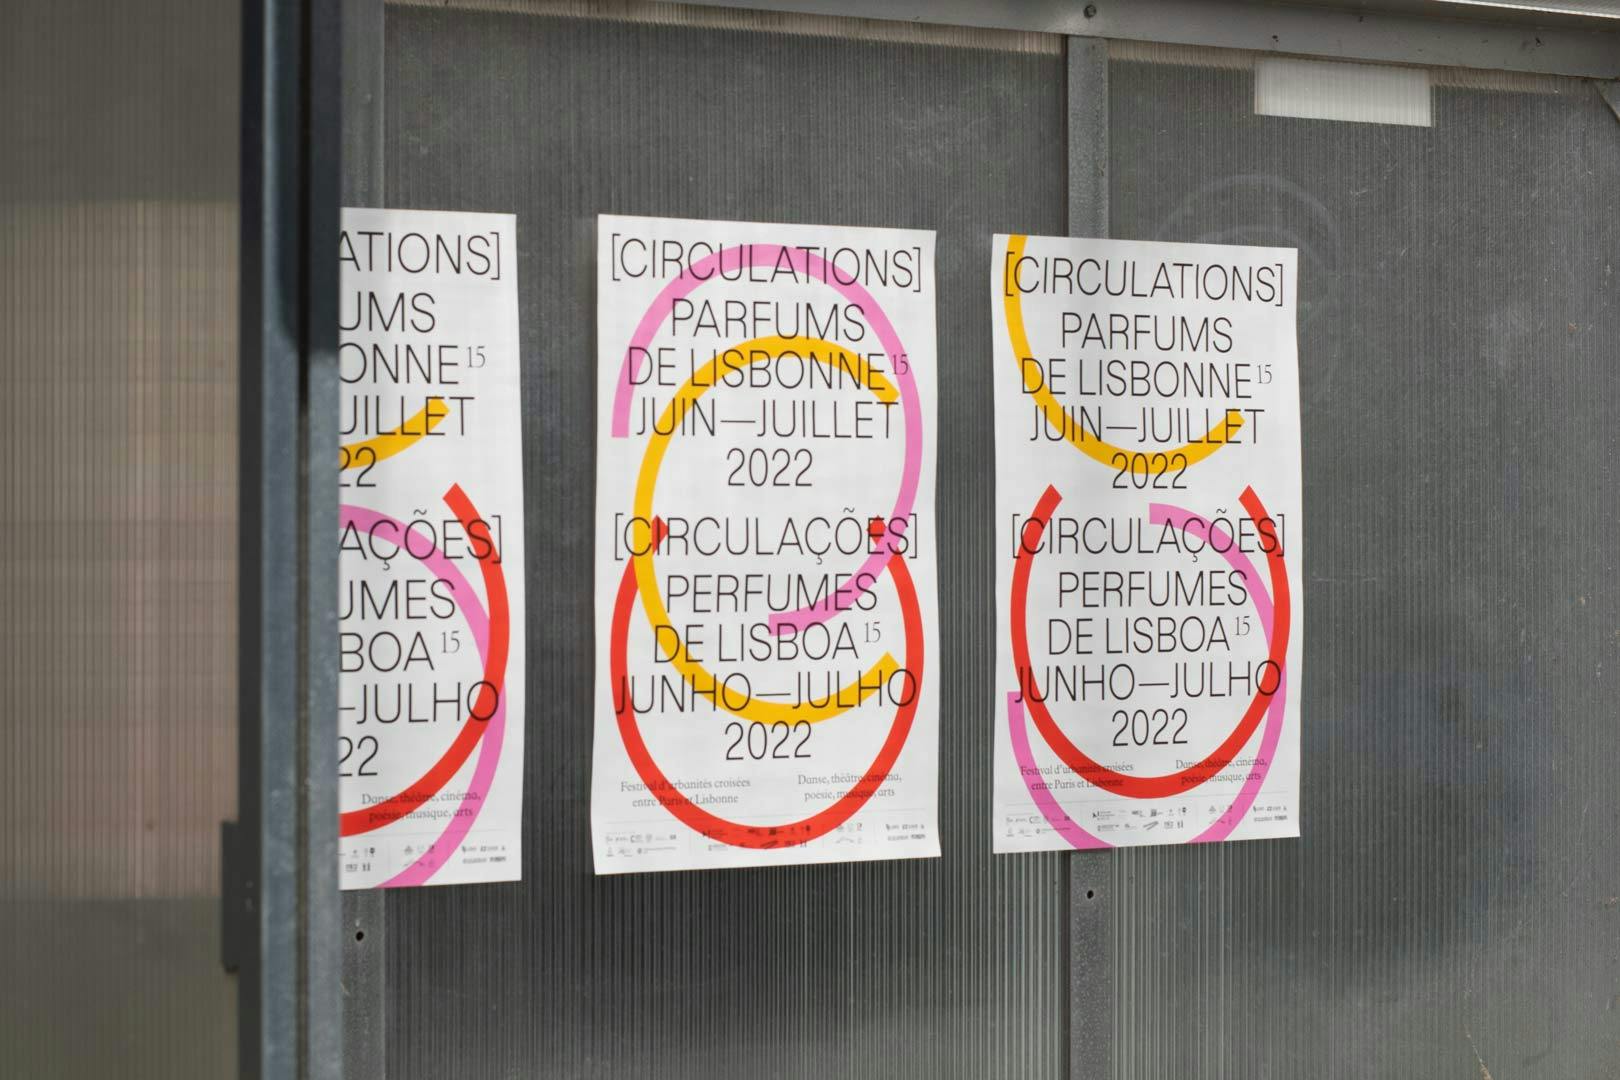 ATIONS]
UMS
ONNE 15
UILLET
22
AÇÕES]
UMES
BOA 15
—JULHO
22
Danse, théâtre, cinéma,
poésie, musique, arts
[CIRCULATIONS]
PARFUMS
DE LISBONNE 15
JUIN—JUILLET
2022
[CIRCULAÇÕES]
PERFUMES
DE LISBOA 15
JUNHO—JULHO
2022
Festival d'urbanités croisées
entre Paris et Lisbonne
Danse, théâtre, cinéma,
poésie, musique, arts
[CIRCULATIONS]
PARFUMS
DE LISBONNE 15
JUIN—JUILLET
2022
[CIRCULAÇÕES]
PERFUMES
DE LISBOA 15
JUNHO—JULHO
2022
Festival d'urbanités croisées
entre Paris et Lisbonne
Danse, théâtre, cinéma,
poésie, musique, arts